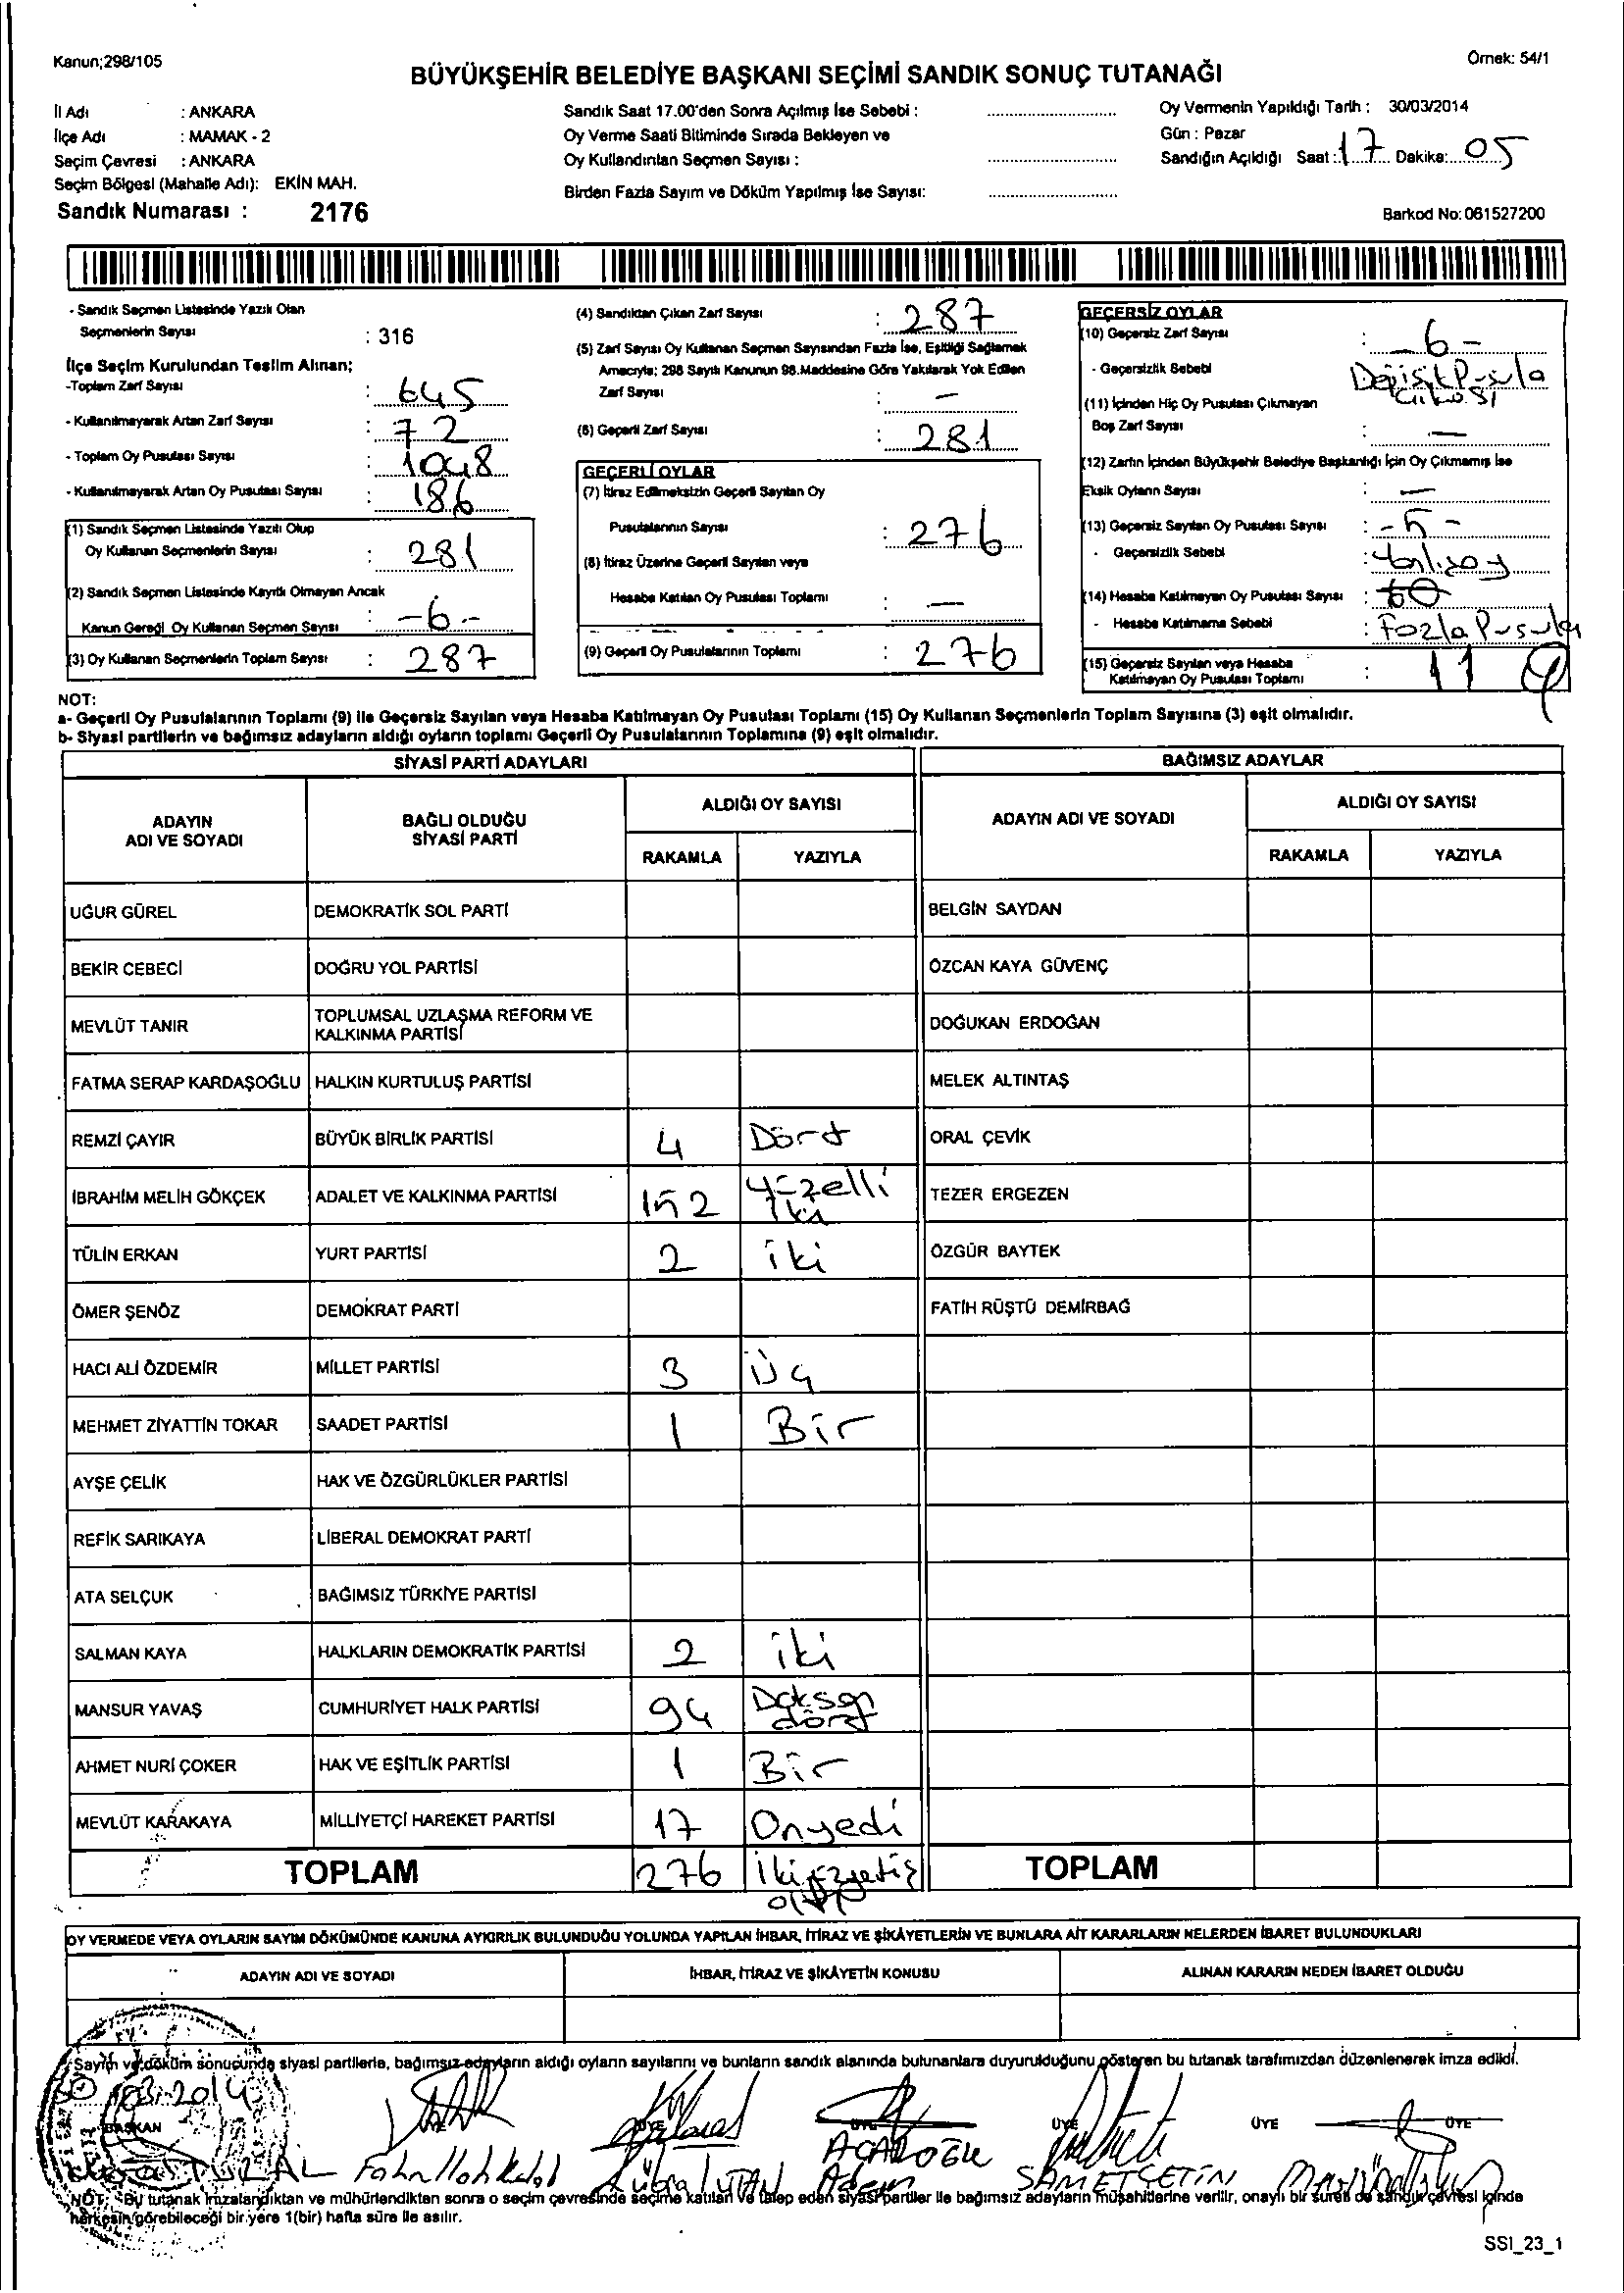 Kanun;298/105
Örnek: 54/1
BÜYÜKŞEHİR BELEDİYE BAŞKANI SEÇİMİ SANDIK SONUÇ TUTANAĞI
İl Adı : ANKARA
İlçe Adı : MAMAK - 2
Seçim Çevresi : ANKARA
Seçim Bölgesi (Mahalle Adı): EKİN MAH.
Sandık Numarası : 2176
Sandık Saat 17.00'den Sonra Açılmış İse Sebebi :
Oy Verme Saati Bitiminde Sırada Bekleyen ve
Oy Kullandırılan Seçmen Sayısı :
Birden Fazla Sayım ve Döküm Yapılmış İse Sayısı:
Oy Vermenin Yapıldığı Tarih : 30/03/2014
Gün : Pazar
Sandığın Açıldığı Saat: 17 Dakika: 05
Barkod No: 061527200
- Sandık Seçmen Listesinde Yazılı Olan
Seçmenlerin Sayısı : 316
İlçe Seçim Kurulundan Teslim Alınan;
-Toplam Zarf Sayısı : 645
- Kullanılmayarak Artan Zarf Sayısı : 72
- Toplam Oy Pusulası Sayısı : 1048
- Kullanılmayarak Artan Oy Pusulası Sayısı : 186
(1) Sandık Seçmen Listesinde Yazılı Olup
Oy Kullanan Seçmenlerin Sayısı : 281
(2) Sandık Seçmen Listesinde Kayıtlı Olmayan Ancak
Kanun Gereği Oy Kullanan Seçmen Sayısı : -6-
(3) Oy Kullanan Seçmenlerin Toplam Sayısı : 287
(4) Sandıktan Çıkan Zarf Sayısı : 287
(5) Zarf Sayısı Oy Kullanan Seçmen Sayısından Fazla İse, Eşitliği Sağlamak
Amacıyla; 298 Sayılı Kanunun 98.Maddesine Göre Yakılarak Yok Edilen
Zarf Sayısı : -
(6) Geçerli Zarf Sayısı : 281
GEÇERLİ OYLAR
(7) İtiraz Edilmeksizin Geçerli Sayılan Oy
Pusulalarının Sayısı : 276
(8) İtiraz Üzerine Geçerli Sayılan veya
Hesaba Katılan Oy Pusulası Toplamı : -
(9) Geçerli Oy Pusulalarının Toplamı : 276
GEÇERSİZ OYLAR
(10) Geçersiz Zarf Sayısı : -6-
- Geçersizlik Sebebi Değişik Pusula
(11) İçinden Hiç Oy Pusulası Çıkmayan
Boş Zarf Sayısı : -
(12) Zarfın İçinden Büyükşehir Belediye Başkanlığı İçin Oy Çıkmamış İse
Eksik Oyların Sayısı : -
(13) Geçersiz Sayılan Oy Pusulası Sayısı : -5-
- Geçersizlik Sebebi :
(14) Hesaba Katılmayan Oy Pusulası Sayısı :
- Hesaba Katılmama Sebebi : Fazla Pusula
(15) Geçersiz Sayılan veya Hesaba
Katılmayan Oy Pusulası Toplamı : 11
NOT:
a- Geçerli Oy Pusulalarının Toplamı (9) ile Geçersiz Sayılan veya Hesaba Katılmayan Oy Pusulası Toplamı (15) Oy Kullanan Seçmenlerin Toplam Sayısına (3) eşit olmalıdır.
b- Siyasi partilerin ve bağımsız adayların aldığı oyların toplamı Geçerli Oy Pusulalarının Toplamına (9) eşit olmalıdır.
SİYASİ PARTİ ADAYLARI BAĞIMSIZ ADAYLAR
ADAYIN ADI VE SOYADI BAĞLI OLDUĞU SİYASİ PARTİ ALDIĞI OY SAYISI ADAYIN ADI VE SOYADI ALDIĞI OY SAYISI
RAKAMLA YAZIYLA RAKAMLA YAZIYLA
UĞUR GÜREL DEMOKRATİK SOL PARTİ BELGİN SAYDAN
BEKİR CEBECİ DOĞRU YOL PARTİSİ ÖZCAN KAYA GÜVENÇ
MEVLÜT TANIR TOPLUMSAL UZLAŞMA REFORM VE KALKINMA PARTİSİ DOĞUKAN ERDOĞAN
FATMA SERAP KARDAŞOĞLU HALKIN KURTULUŞ PARTİSİ MELEK ALTINTAŞ
REMZİ ÇAYIR BÜYÜK BİRLİK PARTİSİ 4 Dört ORAL ÇEVİK
İBRAHİM MELİH GÖKÇEK ADALET VE KALKINMA PARTİSİ 152 yüzelli iki TEZER ERGEZEN
TÜLİN ERKAN YURT PARTİSİ 2 iki ÖZGÜR BAYTEK
ÖMER ŞENÖZ DEMOKRAT PARTİ FATİH RÜŞTÜ DEMİRBAĞ
HACI ALİ ÖZDEMİR MİLLET PARTİSİ 3 Üç
MEHMET ZİYATTİN TOKAR SAADET PARTİSİ 1 Bir
AYŞE ÇELİK HAK VE ÖZGÜRLÜKLER PARTİSİ
REFİK SARIKAYA LİBERAL DEMOKRAT PARTİ
ATA SELÇUK BAĞIMSIZ TÜRKİYE PARTİSİ
SALMAN KAYA HALKLARIN DEMOKRATİK PARTİSİ 2 iki
MANSUR YAVAŞ CUMHURİYET HALK PARTİSİ 94 Doksan dört
AHMET NURİ ÇOKER HAK VE EŞİTLİK PARTİSİ 1 Bir
MEVLÜT KARAKAYA MİLLİYETÇİ HAREKET PARTİSİ 17 Onyedi
TOPLAM 276 TOPLAM
OY VERMEDE VEYA OYLARIN SAYIM DÖKÜMÜNDE KANUNA AYKIRILIK BULUNDUĞU YOLUNDA YAPILAN İHBAR, İTİRAZ VE ŞİKÂYETLERİN VE BUNLARA AİT KARARLARIN NELERDEN İBARET BULUNDUKLARI
ADAYIN ADI VE SOYADI İHBAR, İTİRAZ VE ŞİKÂYETİN KONUSU ALINAN KARARIN NEDEN İBARET OLDUĞU
Sayım ve döküm sonucunda siyasi partilerle, bağımsız adayların aldığı oyların sayılarını ve bunların sandık alanında bulunanlara duyurulduğunu gösteren bu tutanak tarafımızdan düzenlenerek imza edildi.
30 03.2014
BAŞKAN ÜYE ÜYE ÜYE ÜYE ÜYE
TURAL Kübra TUTAN Adem ACAROĞLU SAMET ÇETİN
NOT: Bu tutanak imzalandıktan ve mühürlendikten sonra o seçim çevresinde seçime katılan ve talep eden siyasi partiler ile bağımsız adayların müşahitlerine verilir, onaylı bir sureti de sandık çevresi içinde
herkesin görebileceği bir yere 1(bir) hafta süre ile asılır.
SSI_23_1